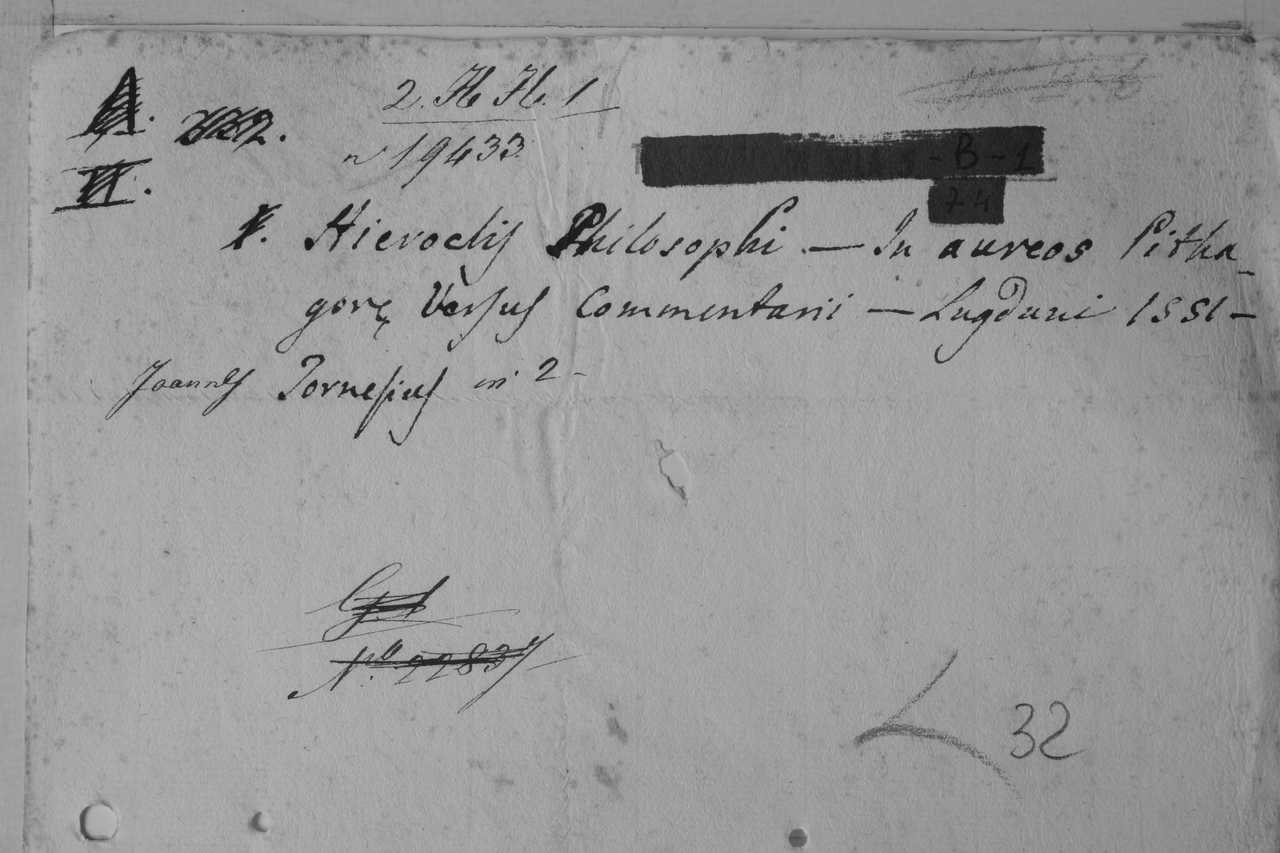 2. H H. 1
n 19433
- B - 1
74
Hieroclis Philosophi — In aureos Pitha-
gorę Versus Commentarii — Lugduni 1551 -
Joannes Tornesius in 2 -
Nº. 22837
32